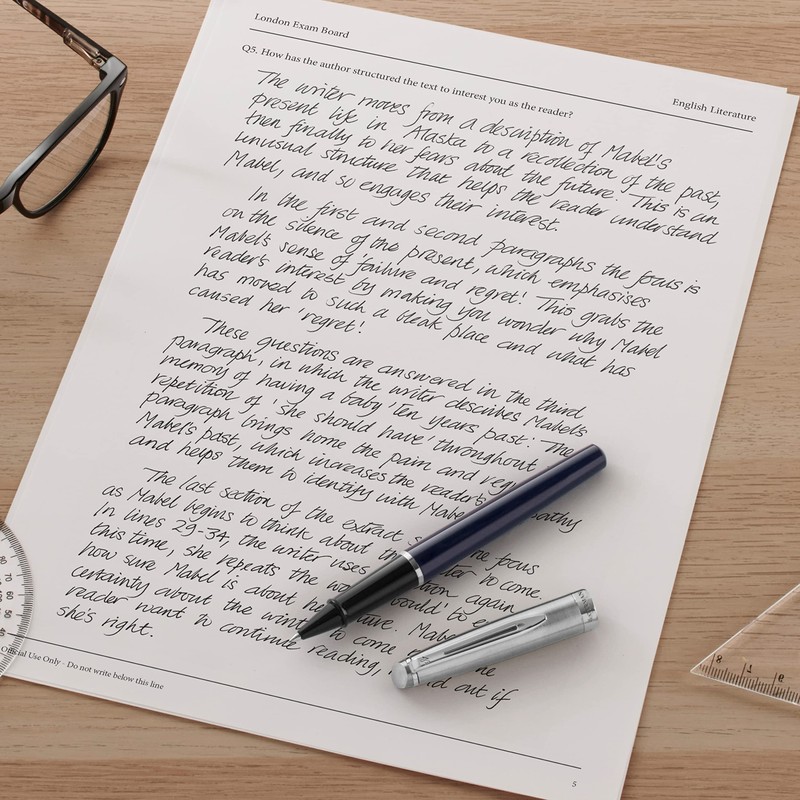 London Exam Board
English Literature
Q5. How has the author structured the text to interest you as the reader?
The writer moves from a description of Mabel's
present life in Alaska to a recollection of the past,
then finally to her fears about the future. This is an
unusual structure that helps the reader understand
Mabel, and so engages their interest.
In the first and second paragraphs the focus is
on the silence of the present, which emphasises
Mabel's sense of 'failure and regret! This grabs the
reader's interest by making you wonder why Mabel
has moved to such a bleak place and what has
caused her 'regret!
These questions are answered in the third
paragraph, in which the writer describes Mabel's
memory of having a baby 'ten years past.' The
repetition of 'she should have' throughout
paragraph brings home the pain and
Mabel's past, which increases the reader's
and helps them to identify with
The last section of the extract
focus
as Mabel begins to think about
to come.
In lines 29-34, the writer uses
again
this time, she repeats the
'would' to
how sure Mabel is about
certainty about the
to come
reader want to continue reading,
out if
she's right.
Official Use Only - Do not write below this line
5
8
9
1
80
70
60
50
40